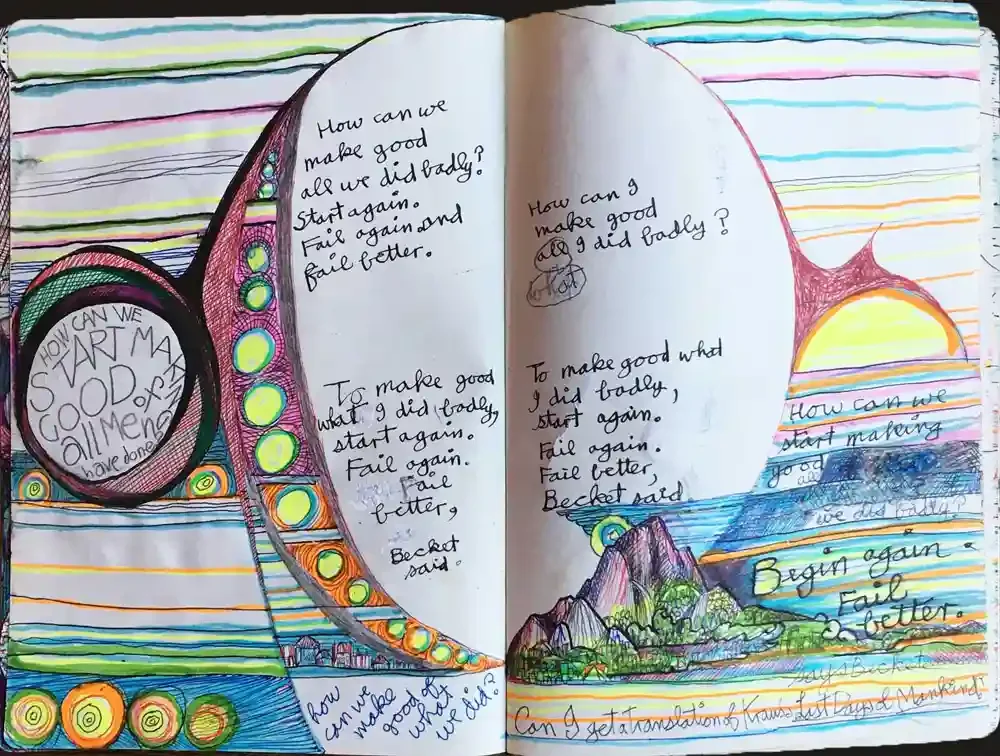 HOW CAN WE
START MAKING
GOOD of
all Men
have done?
How can we
make good
all we did badly?
Start again.
Fail again and
fail better.
To make good
what I did badly,
start again.
Fail again.
Fail
better,
Becket
said.
how
can we
make
good of
what
we did?
How can I
make good
all I did badly?
what
To make good what
I did badly,
start again.
Fail again.
Fail better,
Becket said
How can we
start making
good
all
we did badly?
Begin again.
Fail
better.
says Becket
Can I get a translation of Kraus's Last Days of Mankind?